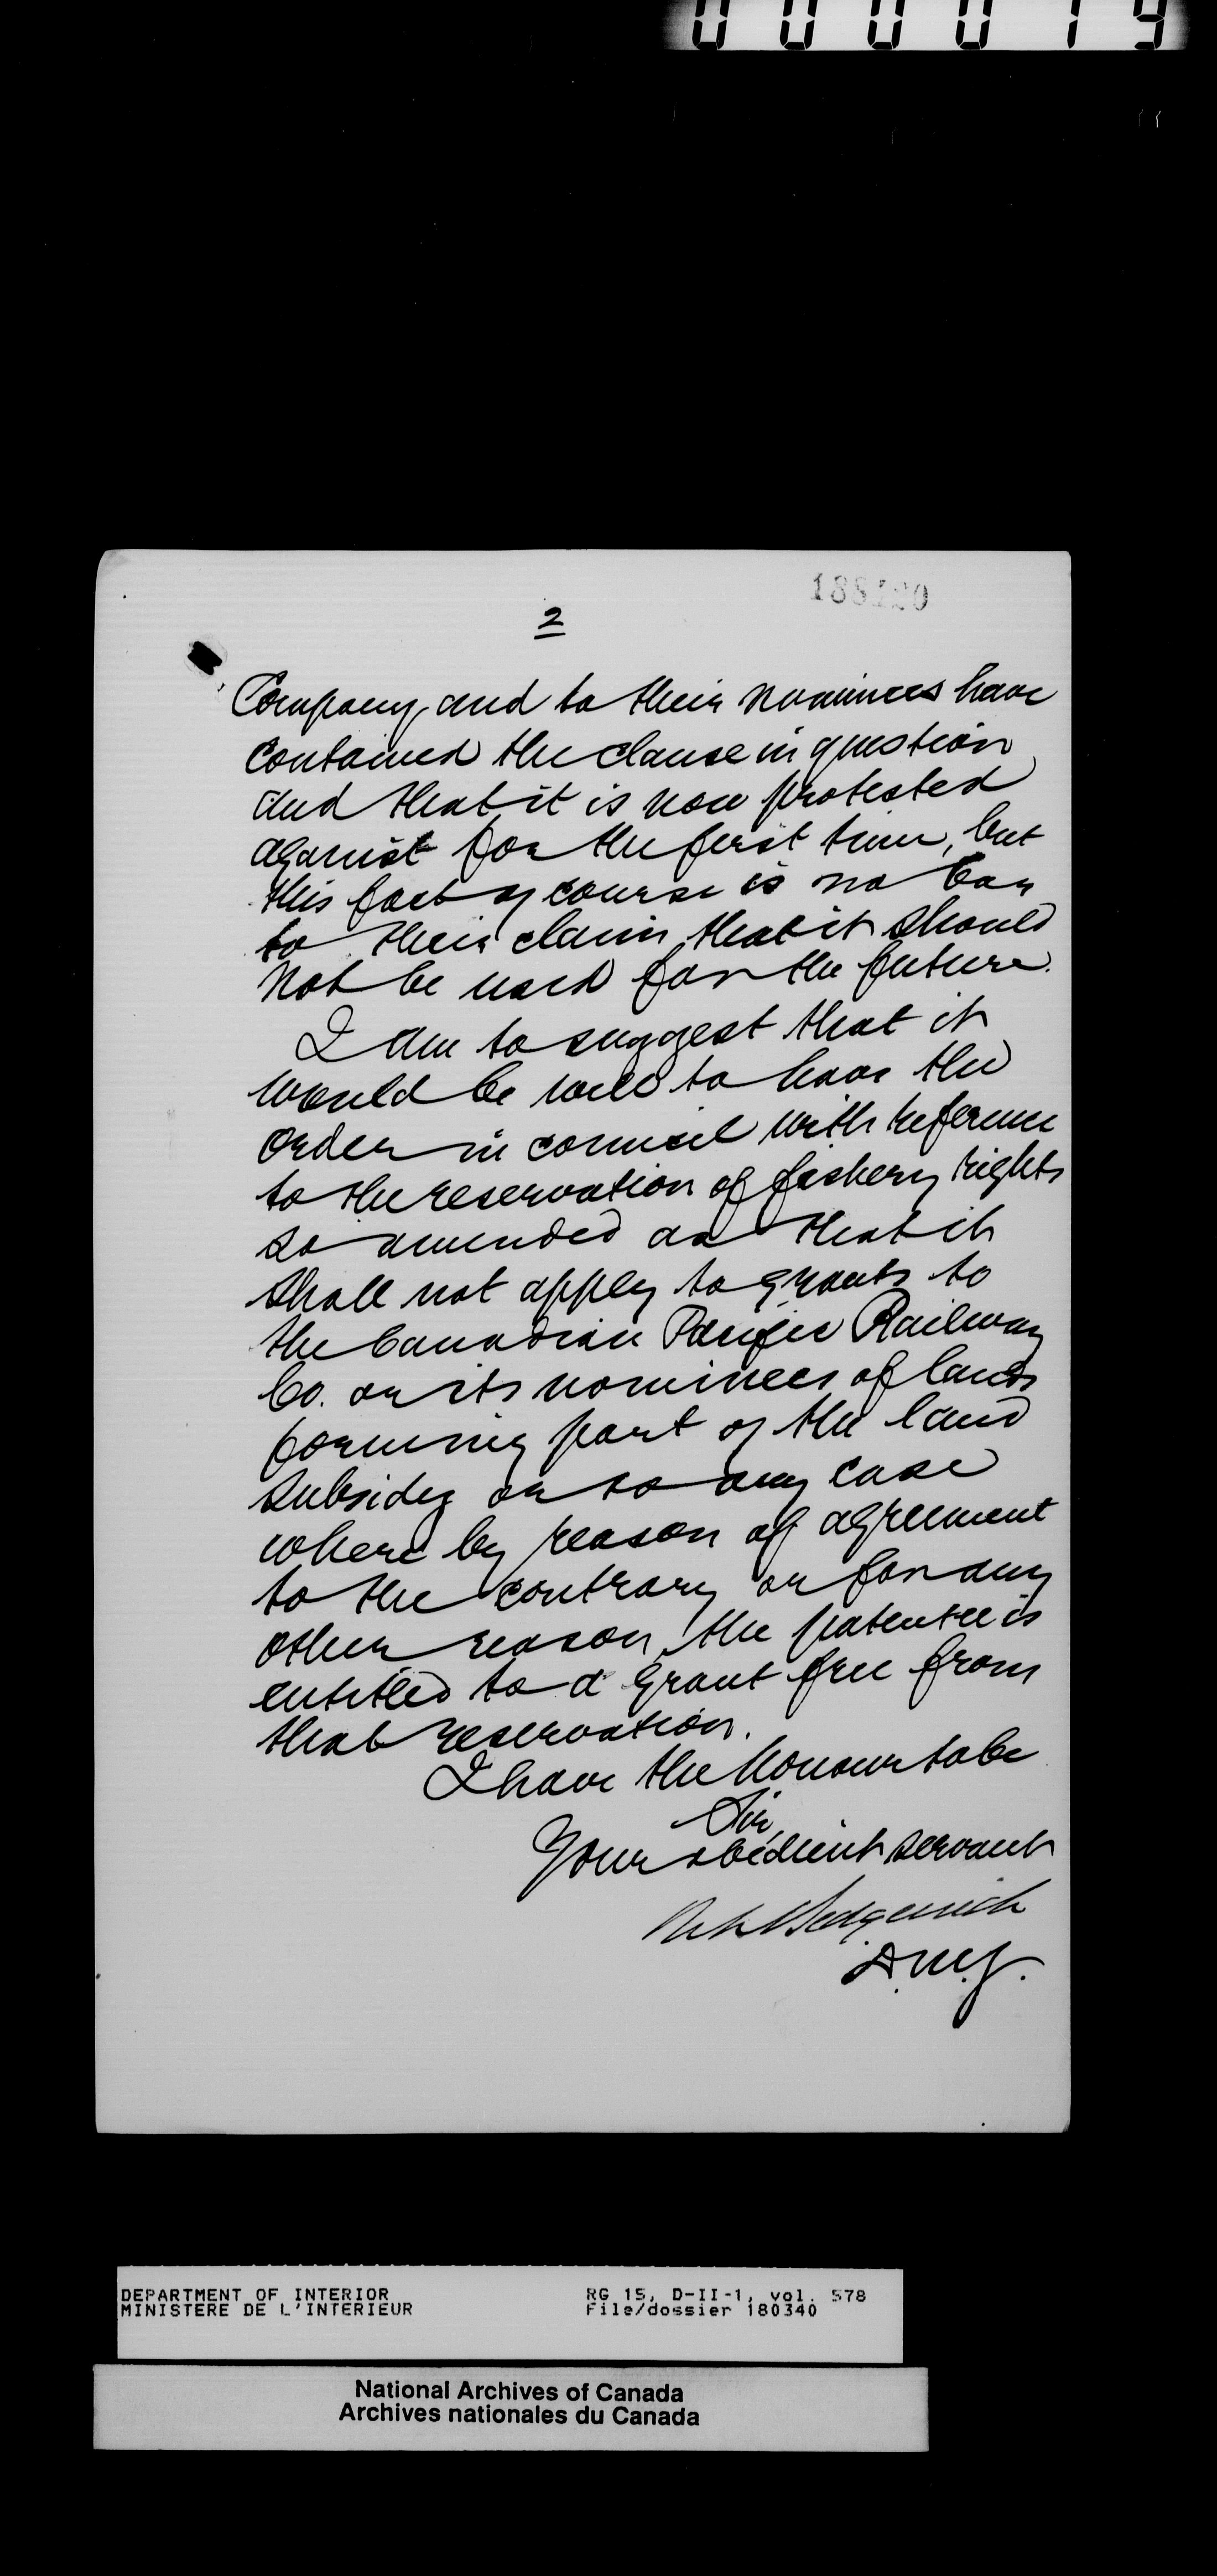 000019
188120
2
Company and to their nominees have
contained the clause in question
and that it is now protested
against for the first time, but
this fact of course is no bar
to their claim that it should
not be used for the future.
I am to suggest that it
would be well to have the
order in council with reference
to the reservation of fishery rights
so amended as that it
shall not apply to grants to
the Canadian Pacific Railway
Co. or its nominees of lands
forming part of the land
subsidy or to any case
where by reason of agreement
to the contrary or for any
other reason, the patentee is
entitled to a grant free from
that reservation.
I have the honour to be
Sir,
Your obedient servant
Sedgewick
D.M.J.
DEPARTMENT OF INTERIOR RG 15, D-II-1, vol. 578
MINISTERE DE L'INTERIEUR File/dossier 180340
National Archives of Canada
Archives nationales du Canada